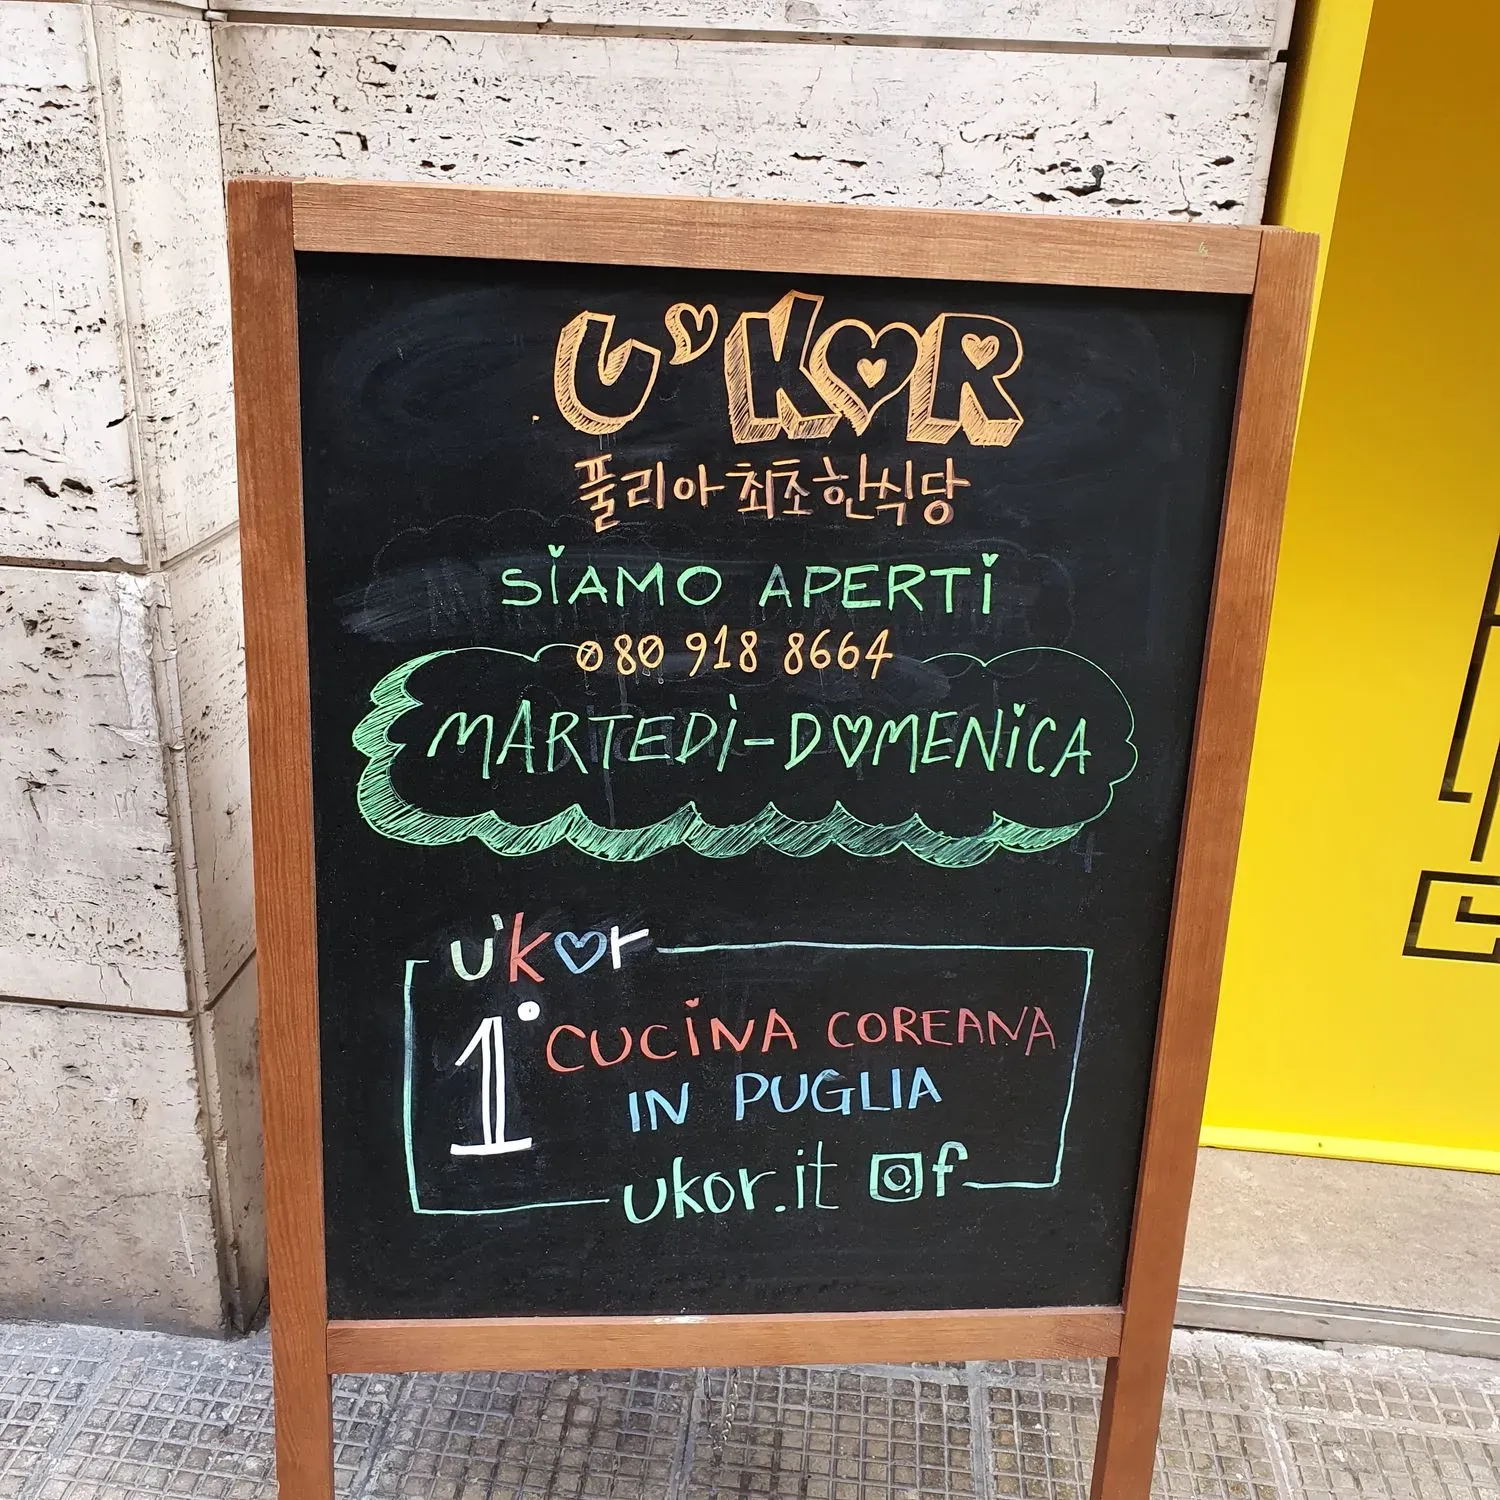 U'KOR
풀리아 최초 한식당
SiAMO APERTi
080 918 8664
MARTEDÌ-DOMENiCA
u'kor
1° CUCiNA COREANA
IN PUGLIA
ukor.it